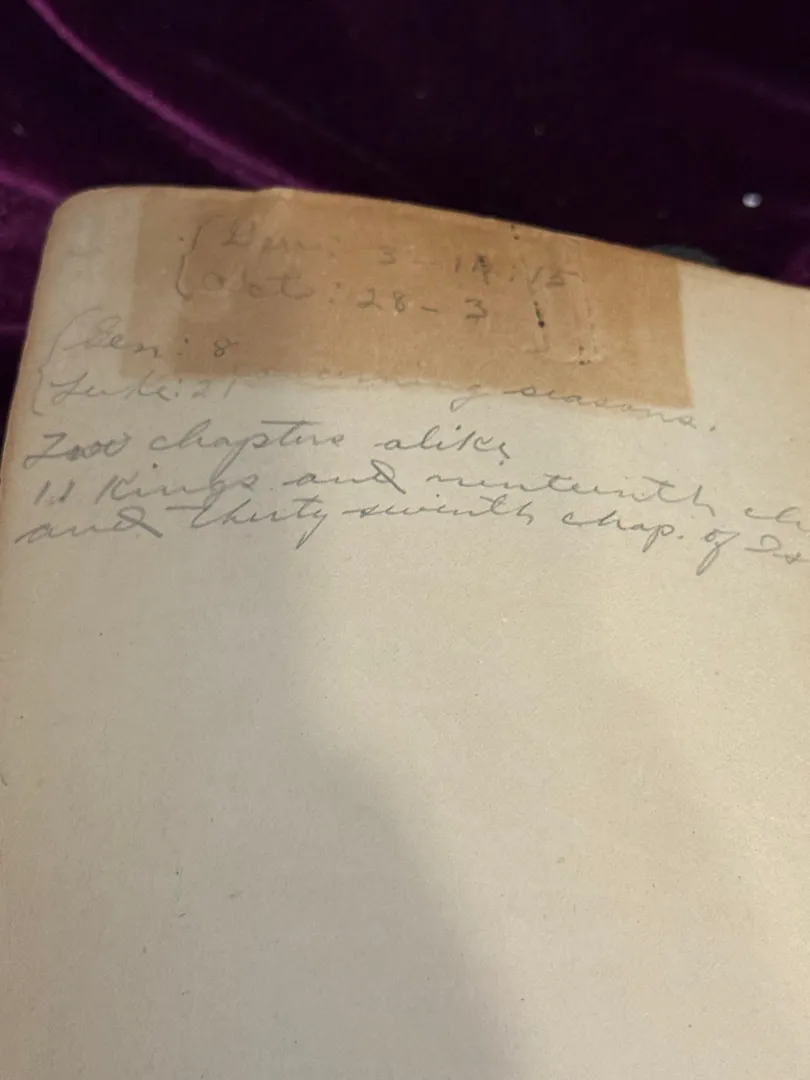 Gen: 3 - 14:15
Act: 28 - 3
Gen: 8
Luke: 21 seasons.
Two chapters alike
11 Kings and ninteenth ch
and Thirty seventh chap. of Is